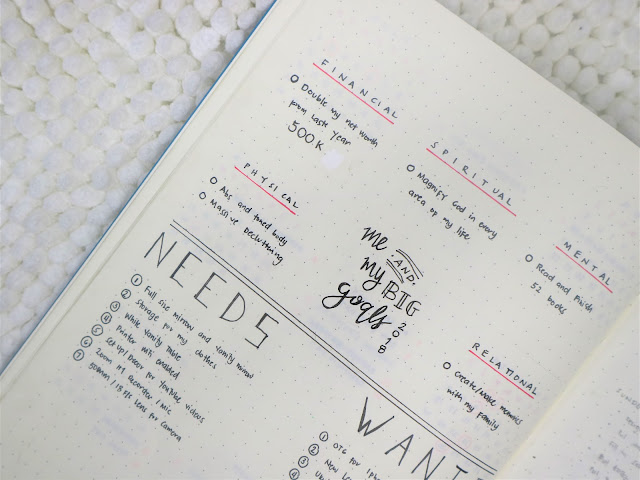 FINANCIAL
Double my net worth
from last year
500K
SPIRITUAL
Magnify God in every
area of my life
PHYSICAL
Abs and toned body
Massive Decluttering
me
AND
my BIG
goals
2018
MENTAL
Read and Finish
52 books
RELATIONAL
Create/Make memories
with my family
NEEDS
1 Full size mirror and vanity mirror
2 Storage for my clothes
3 White Vanity Table
4 Printer wifi enabled
5 Set up/ Decor for YouTube videos
6 Zoom H1 Recorder / Mic
7 50mm / 1.8 lens for Camera
WANTS
1 OTG for
2 New
3